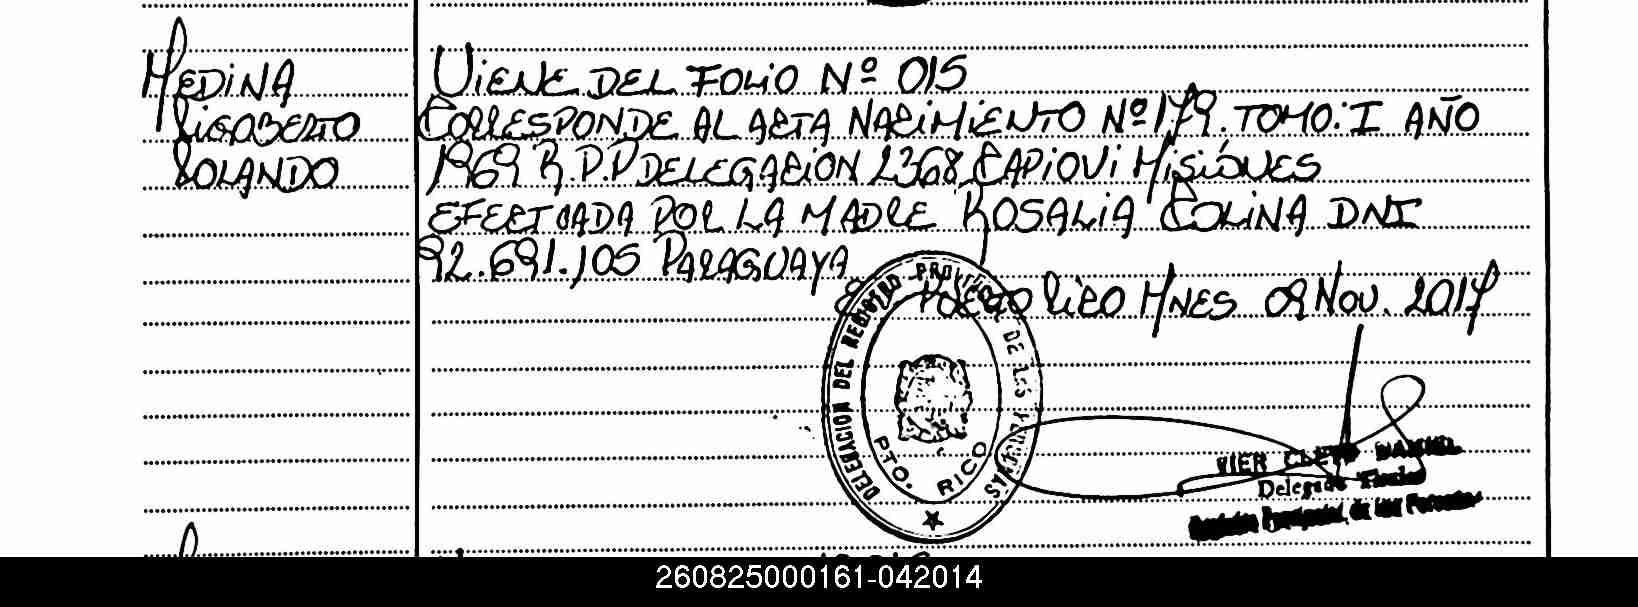 MEDINA
RIGOBERTO
ROLANDO
VIENE DEL FOLIO Nº 015
CORRESPONDE AL ACTA NACIMIENTO Nº 179. TOMO: I AÑO
1969 R.P.P DELEGACION 2368 CAPIOVI MISIONES
EFECTUADA POR LA MADRE ROSALIA COLINA DNI
92.691.105 PARAGUAYA
PUERTO RICO MNES 09 NOV. 2017
DELEGACION DEL REGISTRO PROVINCIAL DE LAS PERSONAS
PTO. RICO
VIER CLETO DANIEL
Delegado Titular
Registro Provincial de las Personas
260825000161-042014